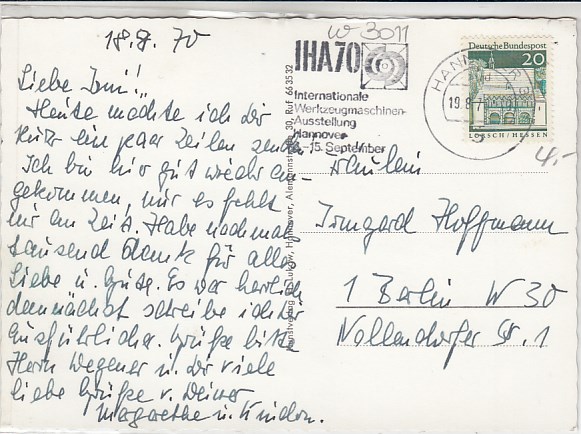 W 3011
18.8.70
IHA70
Internationale
Werkzeugmaschinen-
Ausstellung
Hannover
-15. September
HANNOVER
19.8.70
Deutsche Bundespost
20
LORSCH / HESSEN
4,-
Liebe Irmi!
Heute möchte ich dir
kurz ein paar Zeilen senden
Ich bin hier gut wieder an-
gekommen, mir es fehlt
mir an Zeit. Habe nochmal
tausend Dank für alle
Liebe u. Güte. Es war herrlich
demnächst schreibe ich dir
ausführlicher. Grüße bitte
Herrn Wegener u. dir viele
liebe Grüße v. Deiner
Margarethe u. Kindern.
Fräulein
Irmgard Hoffmann
1 Berlin W 30
Nollendorfer Str. 1
Hannover, Alemannstr. 30, Ruf 66 35 32